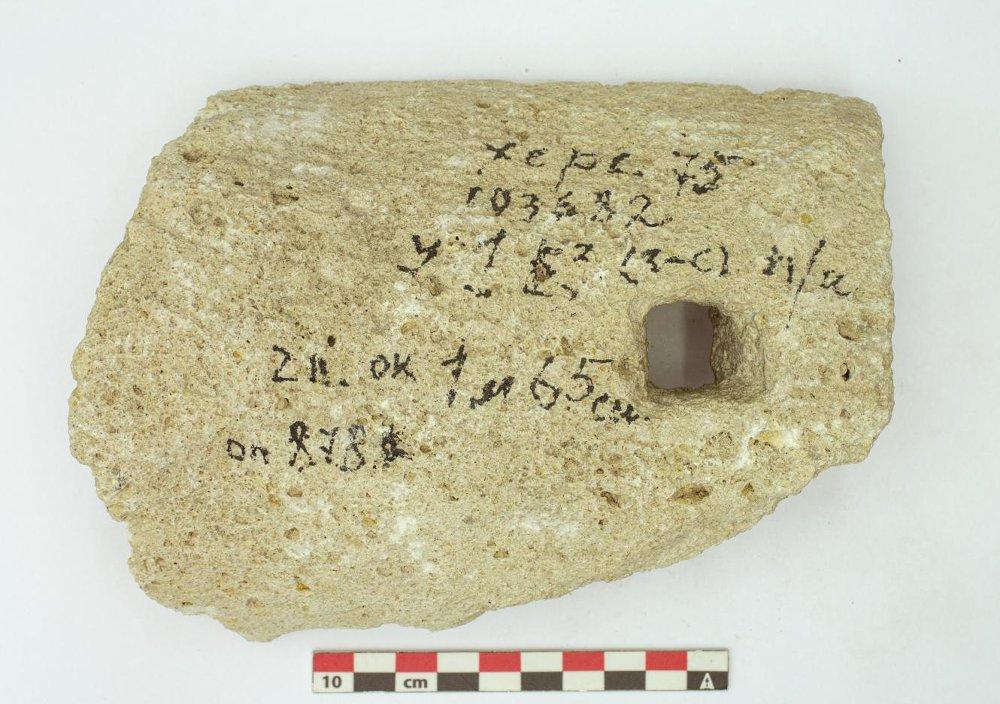 херс. 75
103682
у-1 Б³ (з-с) п/а
2п. ок 1м 65см.
оп 878
10 cm